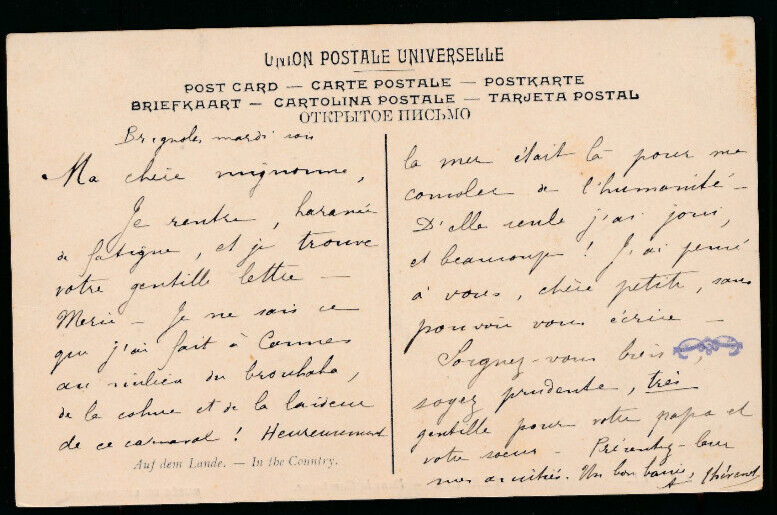 UNION POSTALE UNIVERSELLE
POST CARD — CARTE POSTALE — POSTKARTE
BRIEFKAART — CARTOLINA POSTALE — TARJETA POSTAL
ОТКРЫТОЕ ПИСЬМО
Brignoles mardi soir
Ma chère mignonne,
Je rentre, harassée
de fatigue, et je trouve
votre gentille lettre —
Merci — Je ne sais ce
que j'ai fait à Cannes
au milieu du brouhaha,
de la cohue et de la laideur
de ce carnaval ! Heureusement
Auf dem Lande. — In the Country.
la mer était là pour me
consoler de l'humanité —
D'elle seule j'ai joui,
et beaucoup ! J'ai pensé
à vous, chère petite, sans
pouvoir vous écrire —
Soignez-vous bien,
soyez prudente, très
gentille pour votre papa et
votre soeur — Présentez-leur
mes amitiés. Un bon baiser,